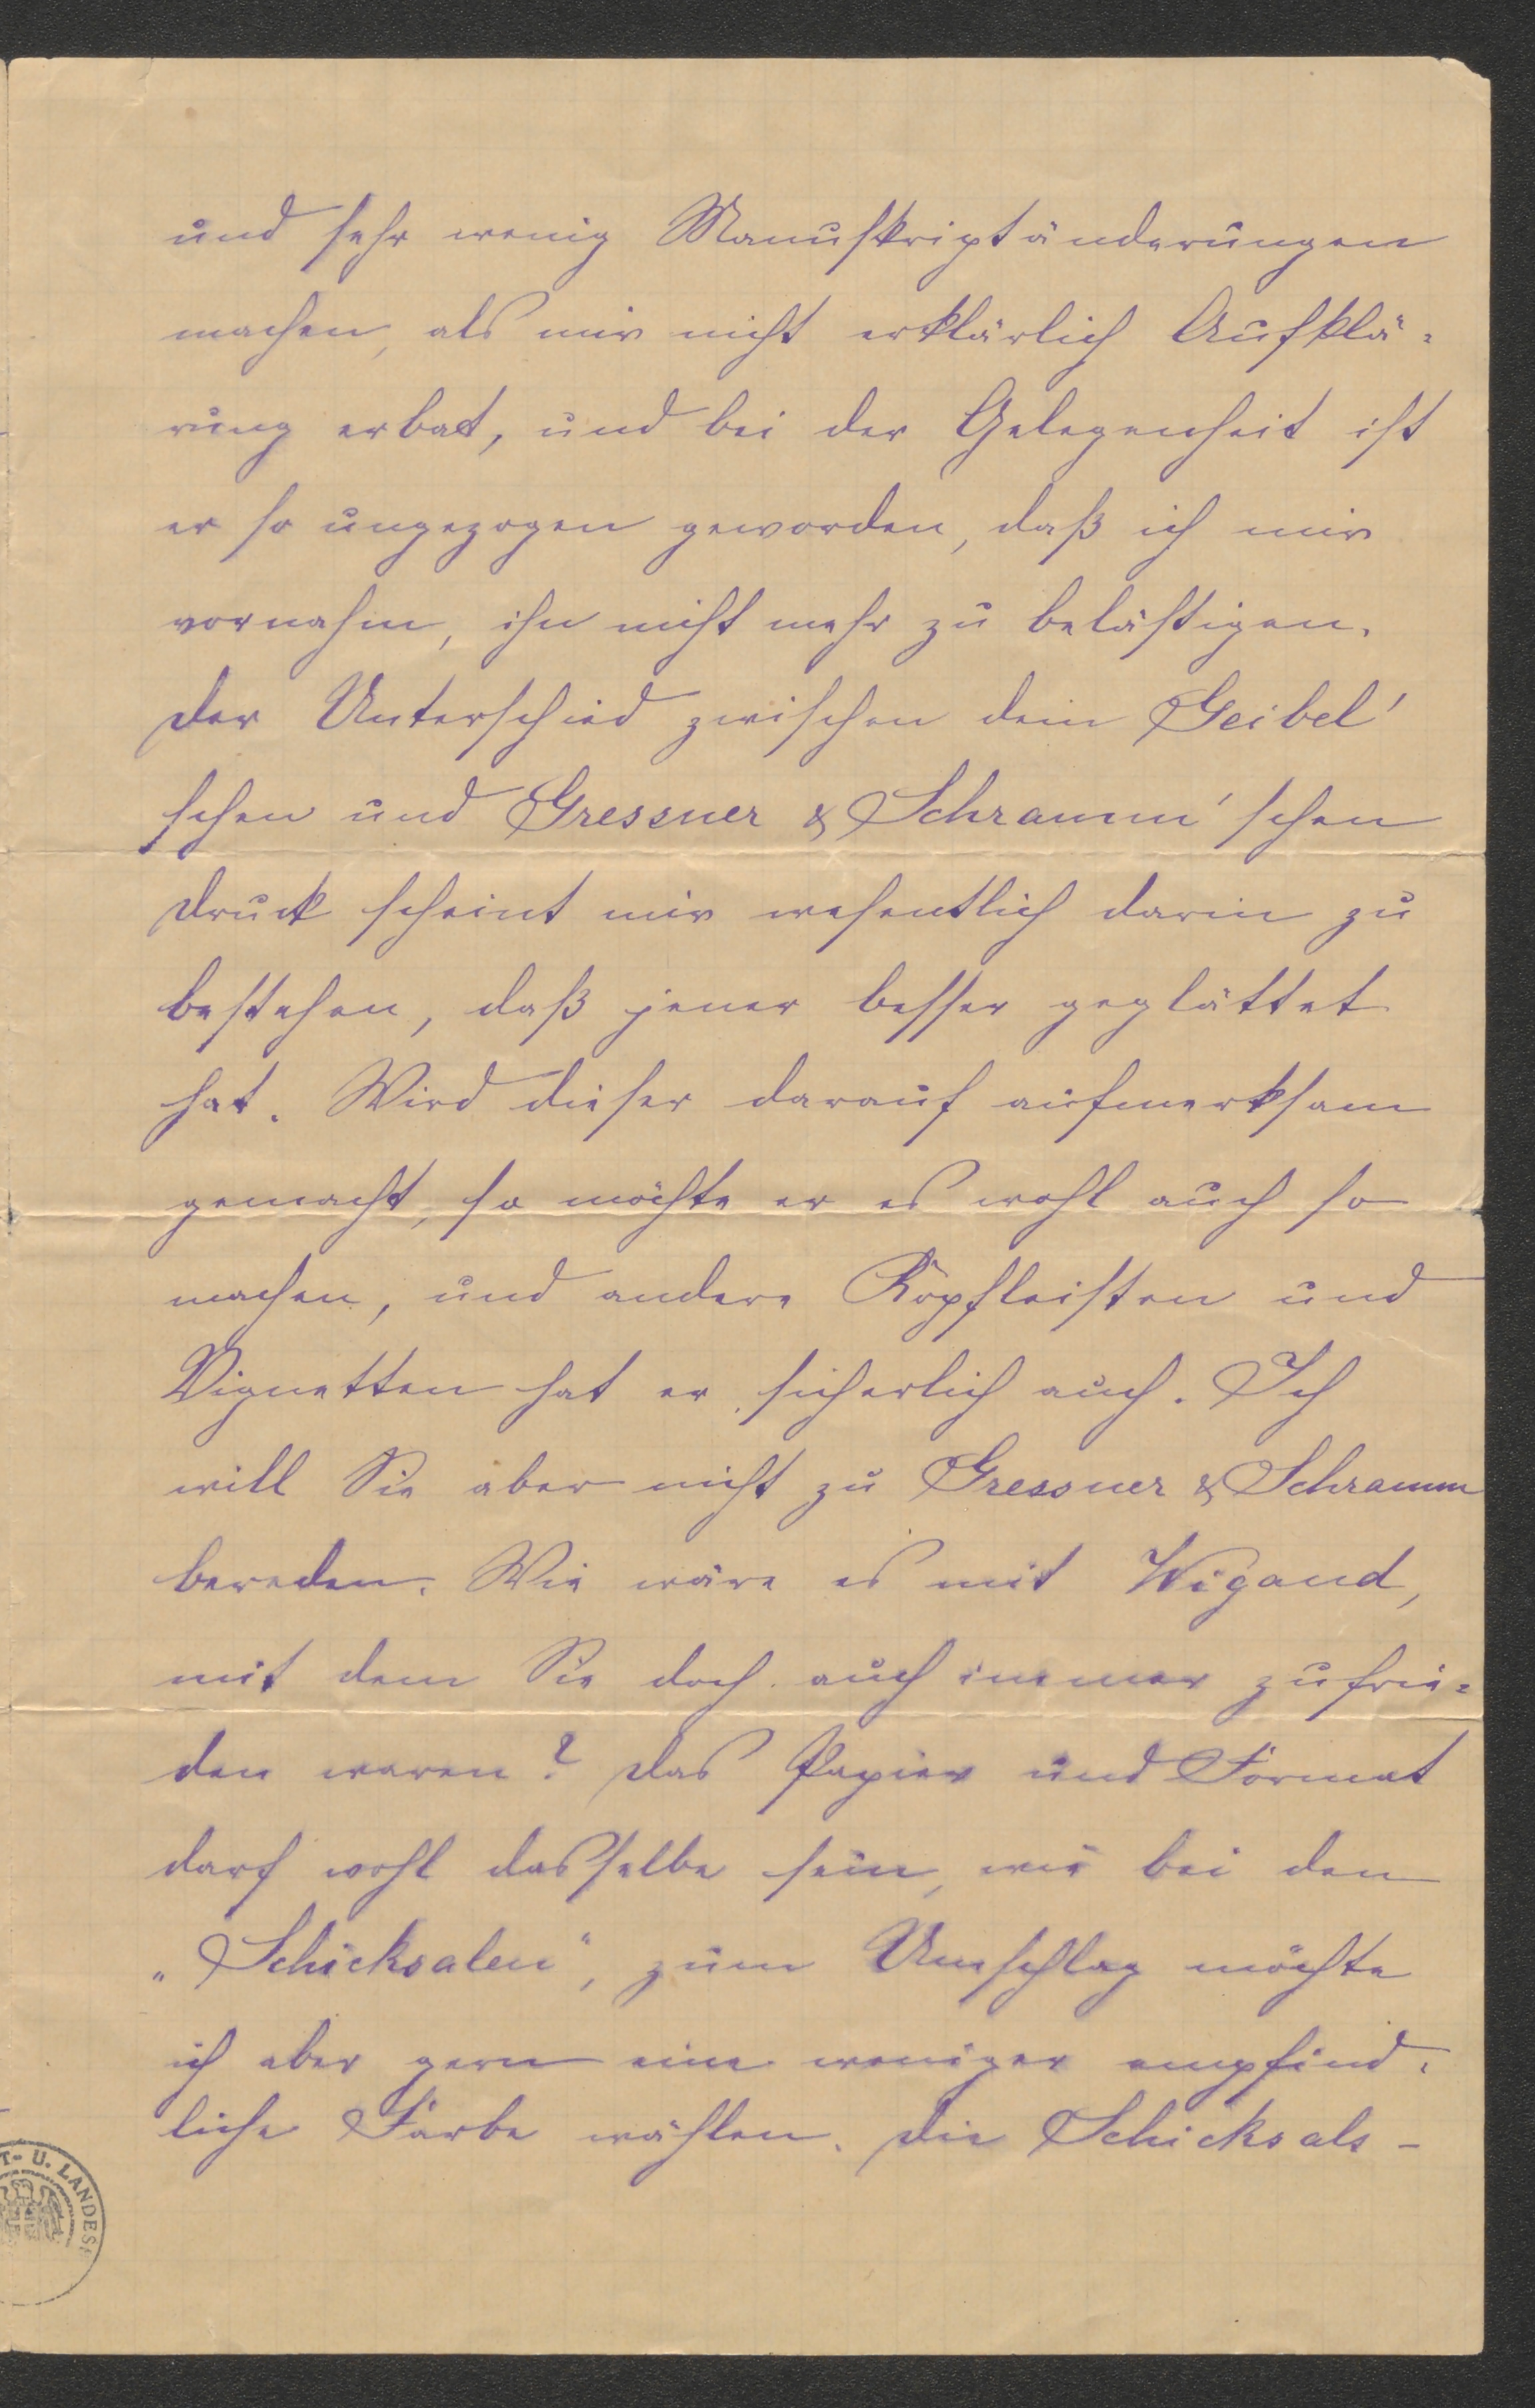 und sehr wenig Manuskriptänderungen
machen, als mir nicht erklärlich Aufklä-
rung erbat, und bei der Gelegenheit ist
er so ungezogen geworden, daß ich mir
vornahm, ihn nicht mehr zu belästigen.
Der Unterschied zwischen dem Geibel'
schen und Gressner & Schramm'schen
Druck scheint mir wesentlich darin zu
bestehen, daß jener besser geglättet
hat. Wird dieser darauf aufmerksam
gemacht, so möchte er es wohl auch so
machen, und andere Kopfleisten und
Vignetten hat er sicherlich auch. Ich
will Sie aber nicht zu Gressner & Schramm
bereden. Wie wäre es mit Wigand,
mit dem Sie doch auch immer zufrie-
den waren? Das Papier und Format
darf wohl dasselbe sein, wie bei den
„Schicksalen“, zum Umschlag möchte
ich aber gern eine weniger empfind-
liche Farbe wählen. Die Schicksals-
T- U. LANDES